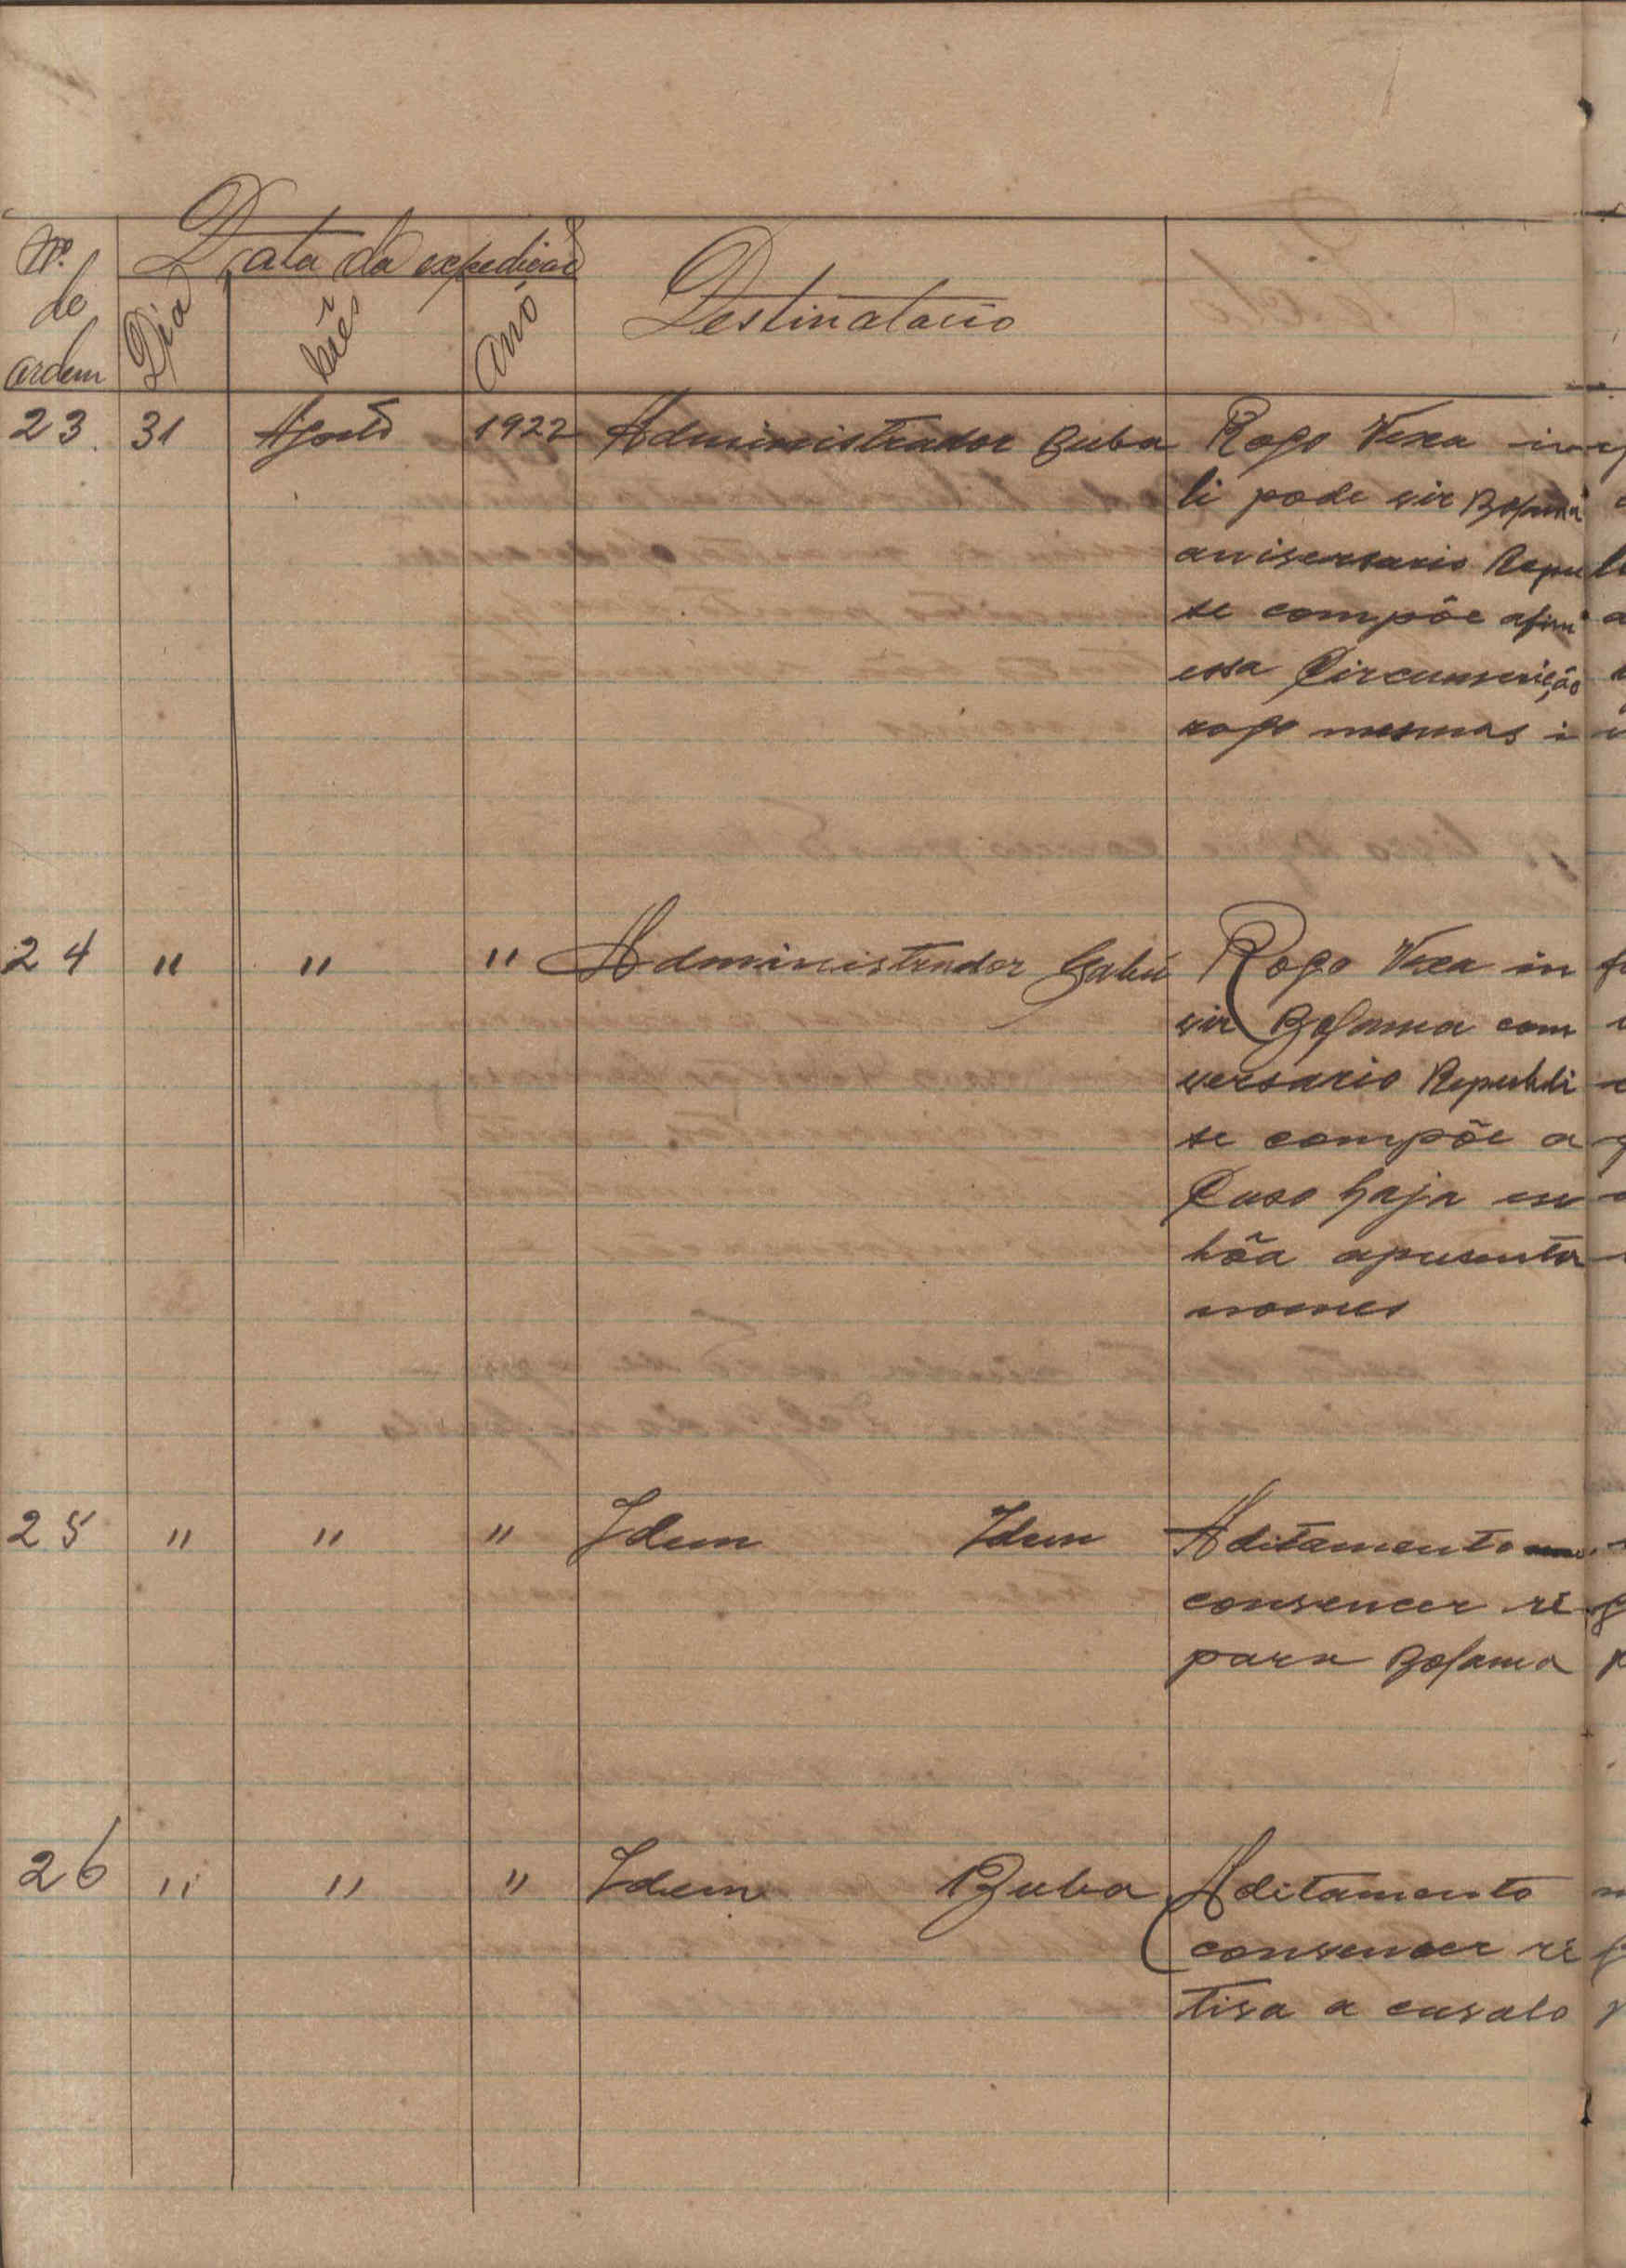 Nº. de ordem
Data da expedição
Dia
Mês
Ano
Destinatario
23. 31 Agosto 1922 Administrador Buba Rogo Vexa in
li pode vir Bolama
aniversario Repu
se compõe afim
essa Circunscrição
rogo mesmas i
24 " " " Administrador Gabú Rogo Vexa in
vir Bolama com
versario Republi
se compõe a
Caso haja
bôa apresenta
nomes
25 " " " Idem Idem Aditamento
convencer ré
para Bolama
26 " " " Idem Buba Aditamento
convencer ré
tiva a cavalo